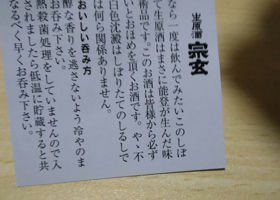 生原酒 宗玄
なら一度は飲んでみたいこのしぼ
て生原酒はまさに能登が生んだ味
術品です。このお酒は皆様から必ず
いとおほめを頂くお酒です。やゝ不
白色沈澱はしぼりたてのしるしで
は何ら関係ありません。
おいしい呑み方
醇な香りを逃さないよう冷やのまま
お呑み下さい。
殺菌処理をしていませんので入
されましたら低温に貯蔵すると共
なるべく早くお呑み下さい。